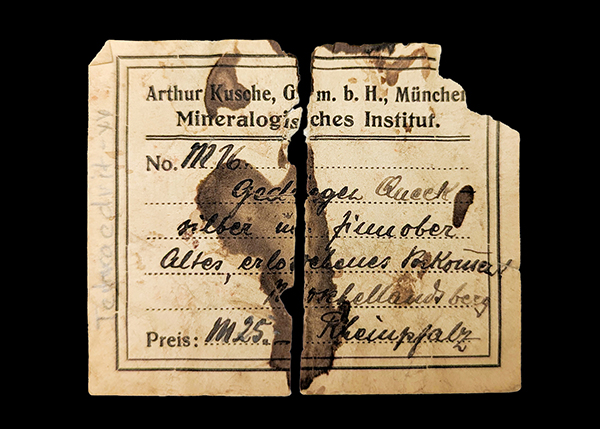 Arthur Kusche, G. m. b. H., München
Mineralogisches Institut.
No. M 76.
Gediegen Queck-
silber mit Zinnober
Altes, erloschenes Vorkommen
Moschellandsberg
Preis: M 25.- Rheinpfalz